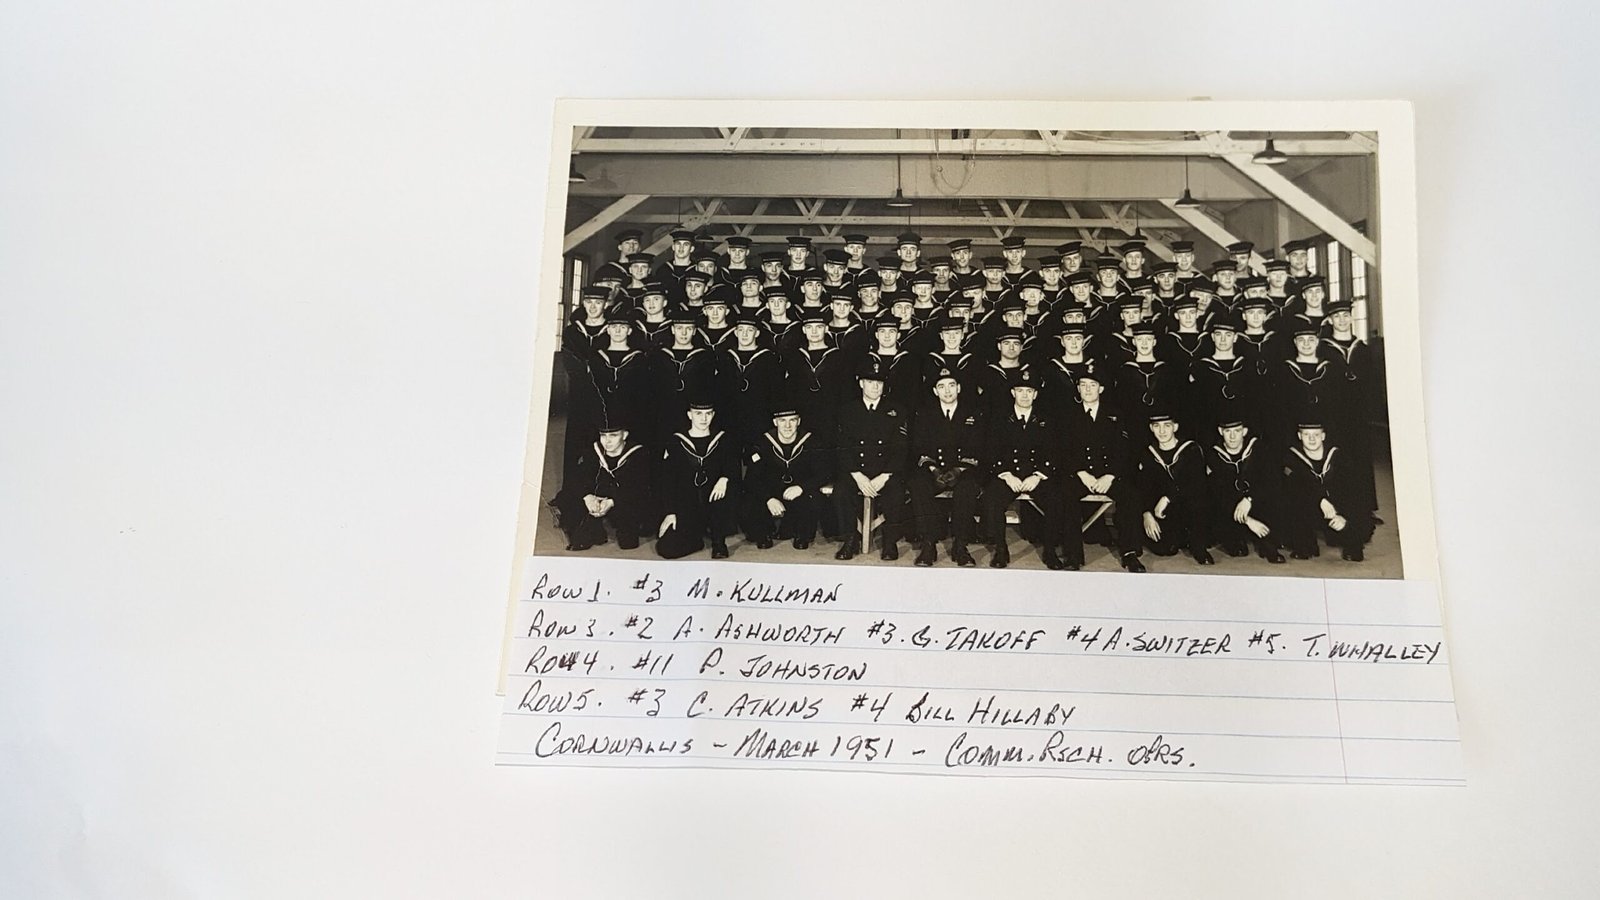 ROW 1. #3 M. KULLMAN
ROW 3. #2 A. ASHWORTH #3. G. TAKOFF #4 A. SWITZER #5. T. WHALLEY
ROW 4. #11 P. JOHNSTON
ROW 5. #3 C. ATKINS #4 BILL HILLABY
CORNWALLIS - MARCH 1951 - COMM. RSCH. OPRS.